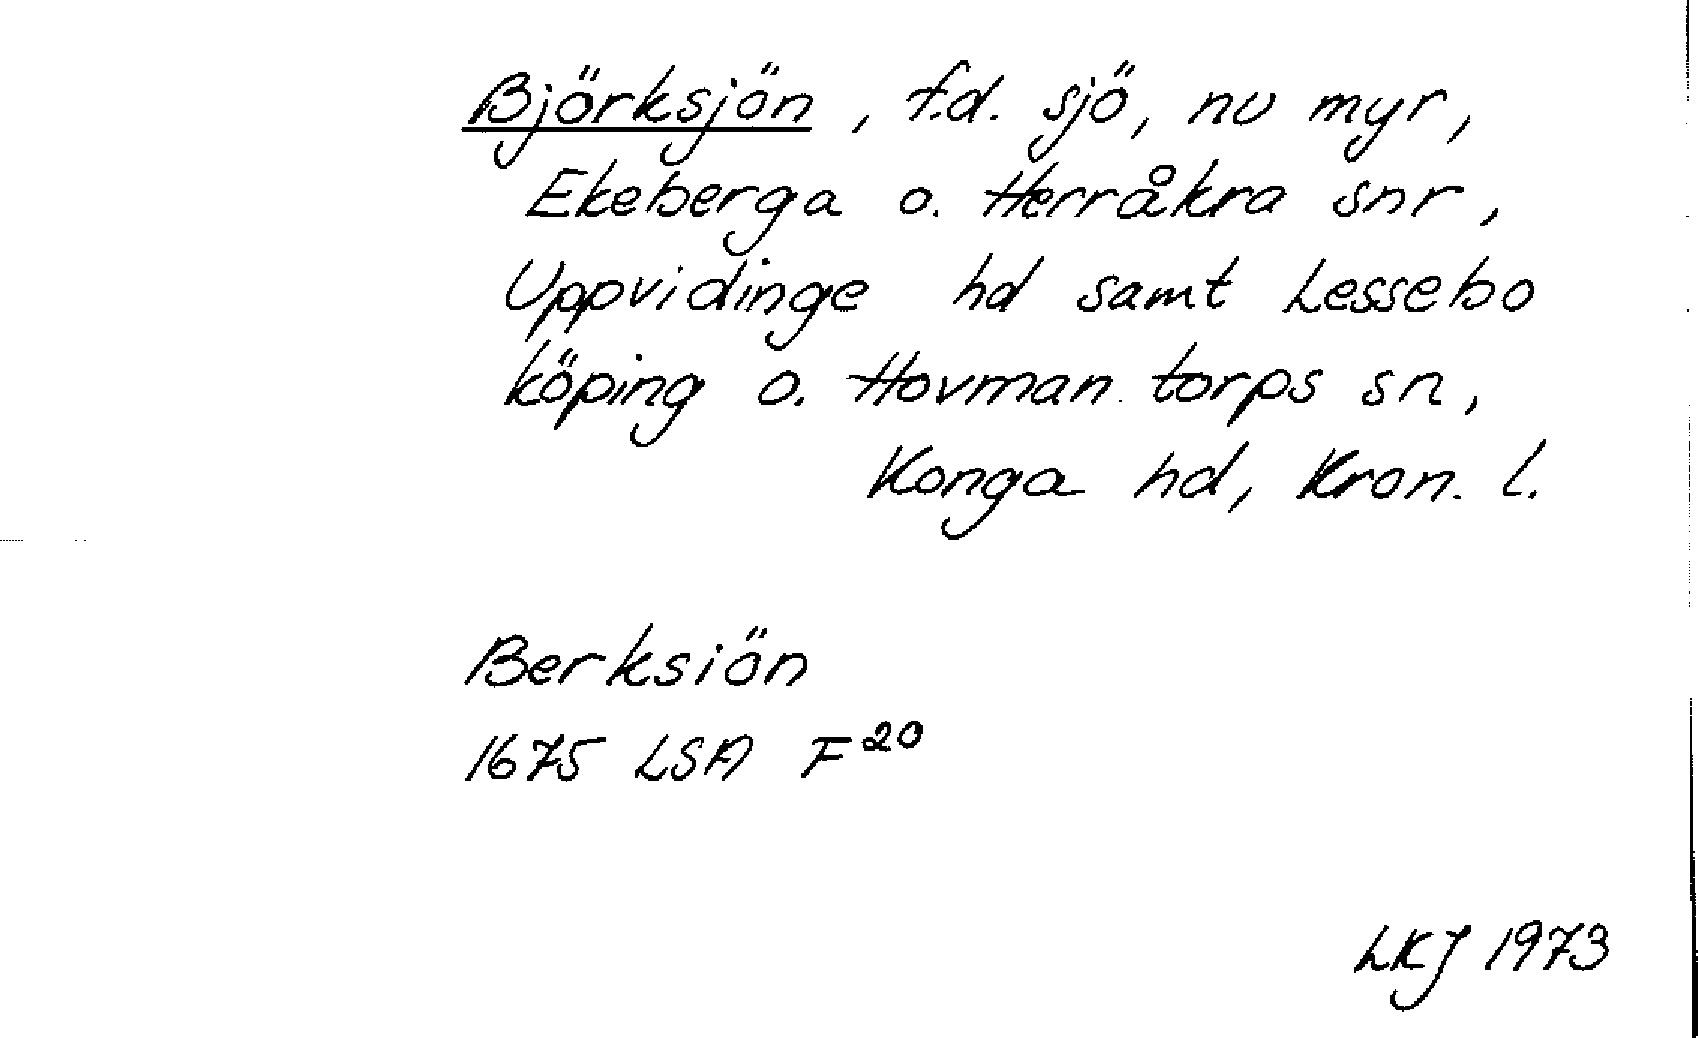 Björksjön, f.d. sjö, nu myr,
Ekeberga o. Herråkra snr,
Uppvidinge hd samt Lessebo
köping o. Hovmantorps sn,
Konga hd, Kron. l.
Berksiön
1675 LSA F²⁰
LKJ 1973